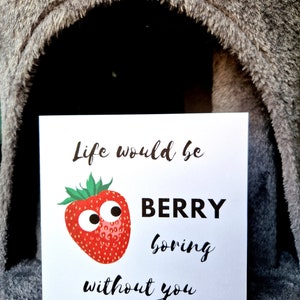 Life would be
BERRY
boring
without you